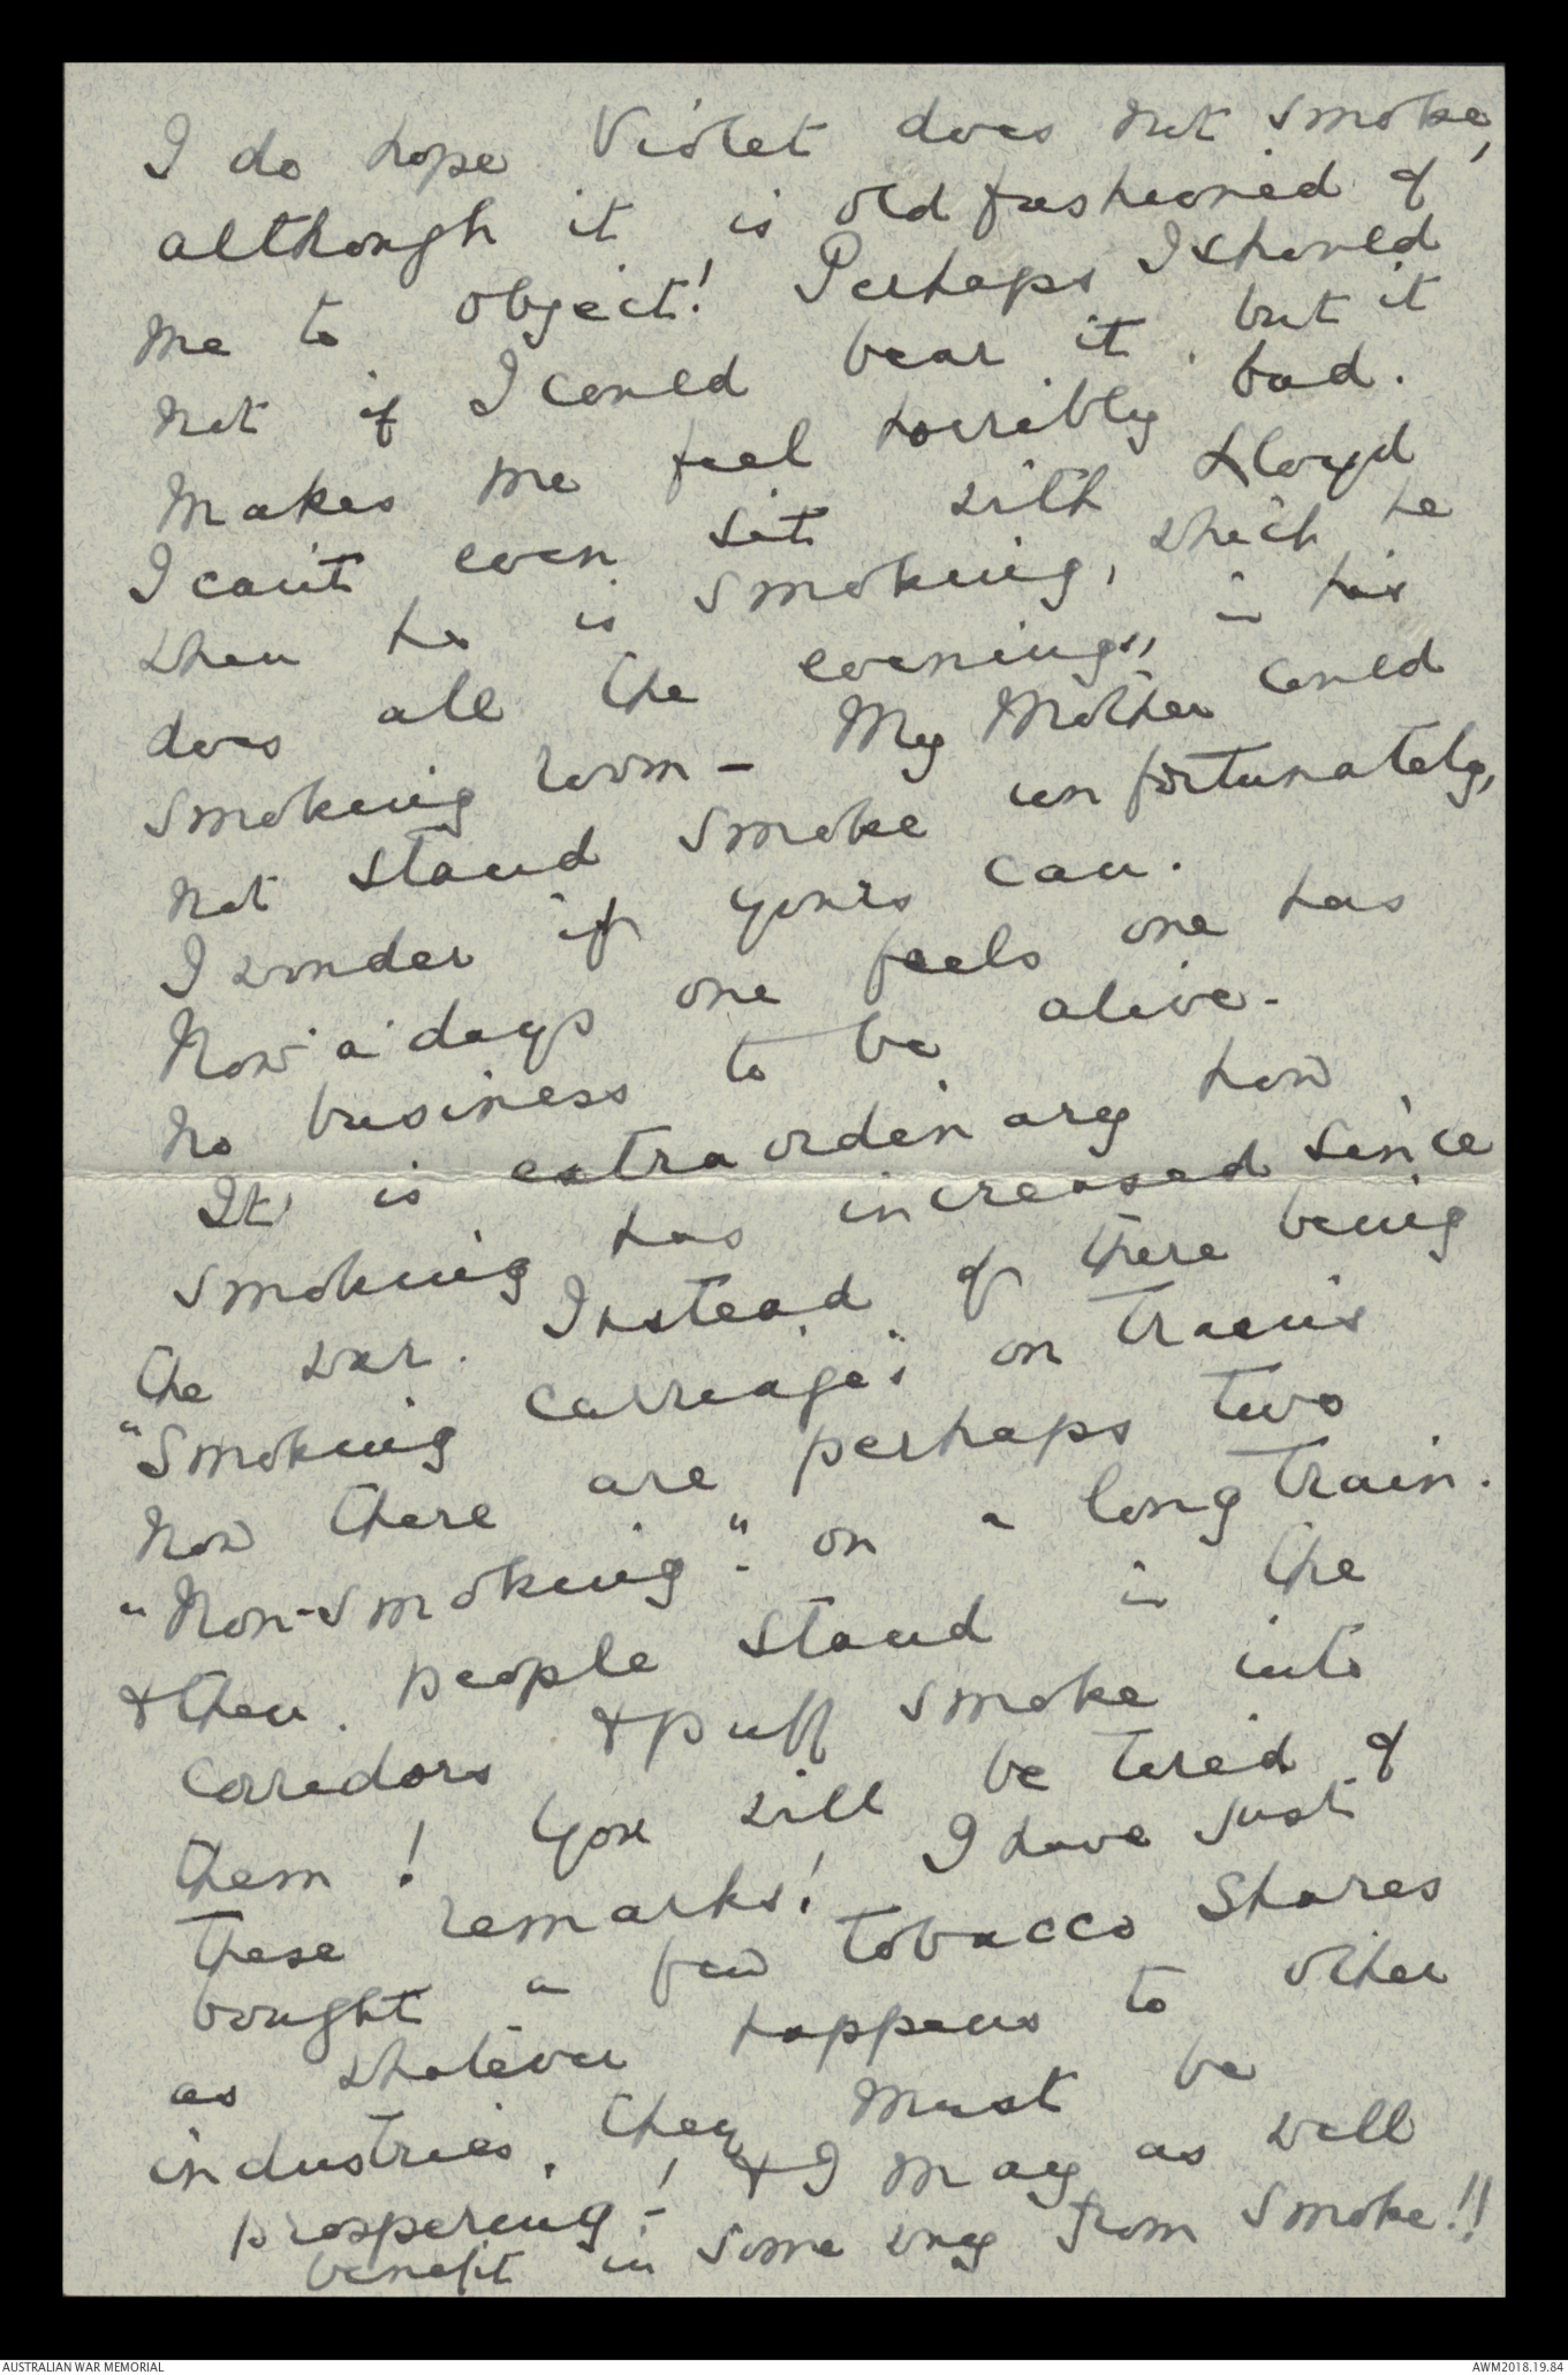 I do hope Violet does not smoke,
although it is old fashioned of
me to object! Perhaps I should
not if I could bear it, but it
makes me feel horribly bad.
I can't even sit with Lloyd
when he is smoking, which he
does all the evenings, in his
smoking room - My Mother could
not stand smoke unfortunately,
I wonder if yours can.
Now'a'days one feels one has
no business to be alive -
It is extraordinary how
smoking has increased since
the war. Instead of there being
"Smoking carriages" on trains
now there are perhaps two
"Non-smoking" on a long train.
& then people stand in the
corridors & puff smoke into
them! You will be tired of
these remarks! I have just
bought a few Tobacco Shares
as whatever happens to other
industries, they must be
prospering -! & I may as well
benefit in some way from smoke!!
AUSTRALIAN WAR MEMORIAL
AWM2018.19.84